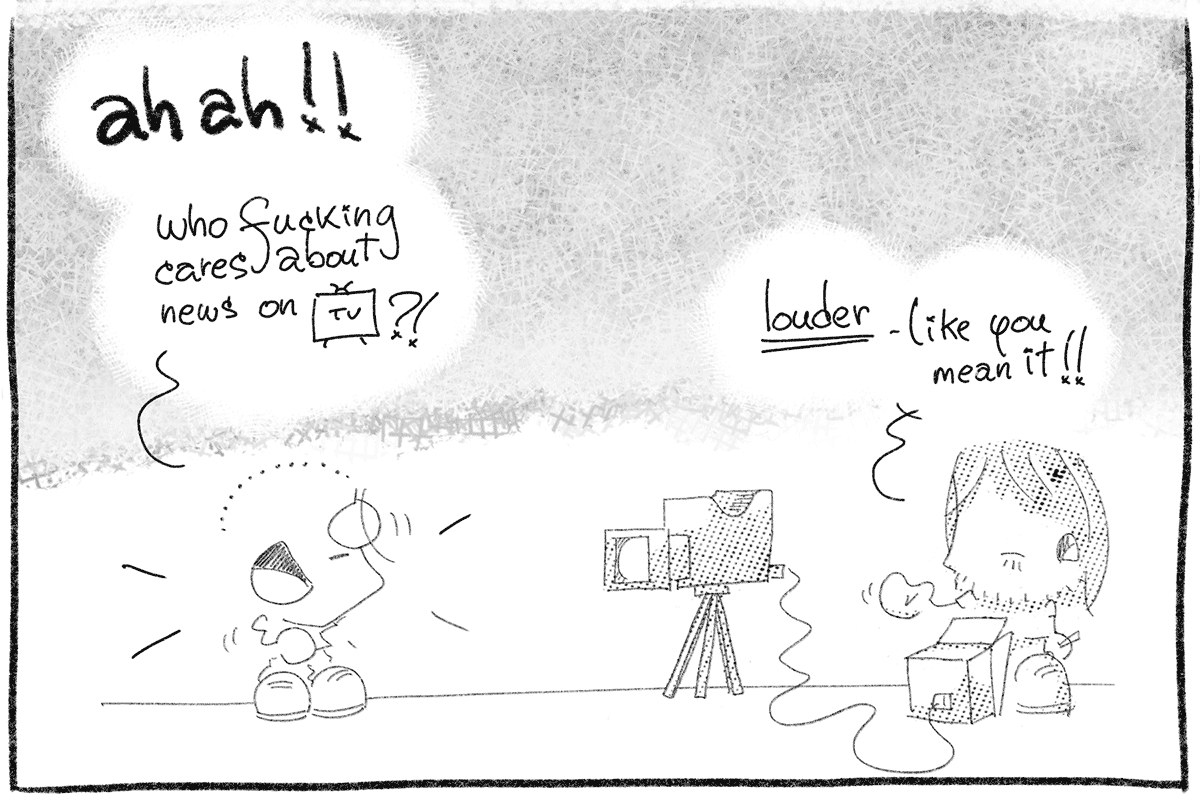 ah ah!!
who fucking
cares about
news on TV ?!
louder - like you
mean it!!